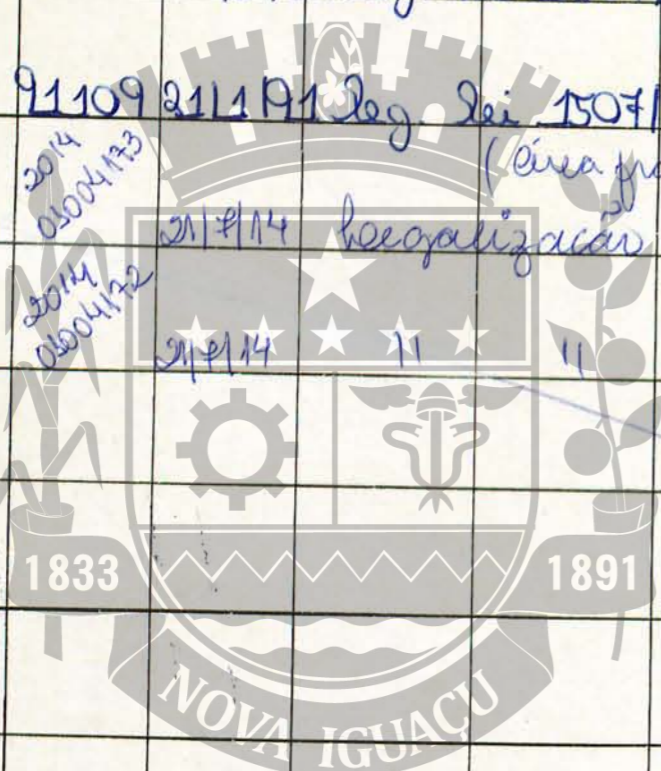 91109 21/1/91 Leg. Lei 1507/
2014
03004173
21/7/14 Legalização
2014
03004172
21/7/14 11 11
1833
1891
NOVA IGUAÇU